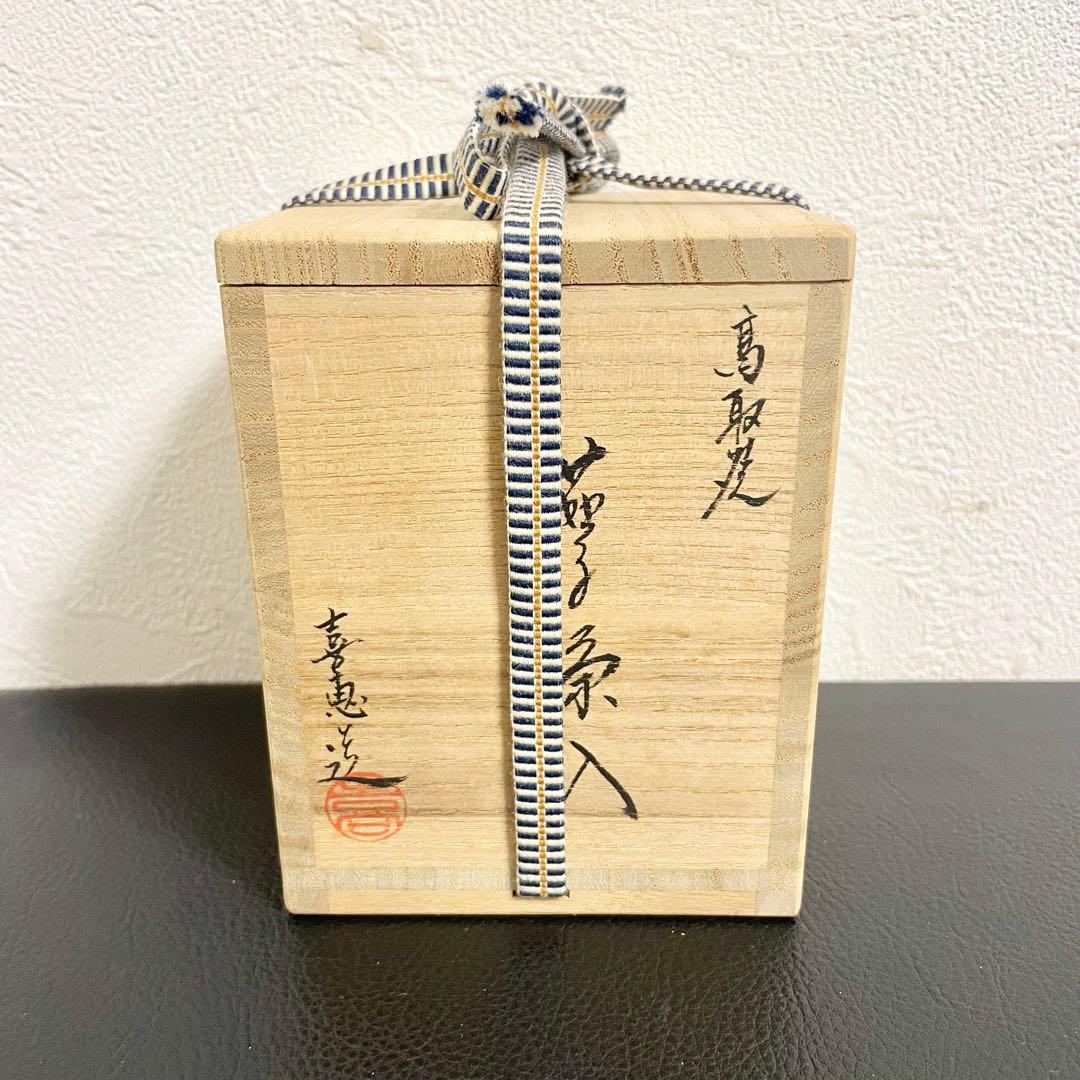 高取焼
茄子茶入
喜恵造